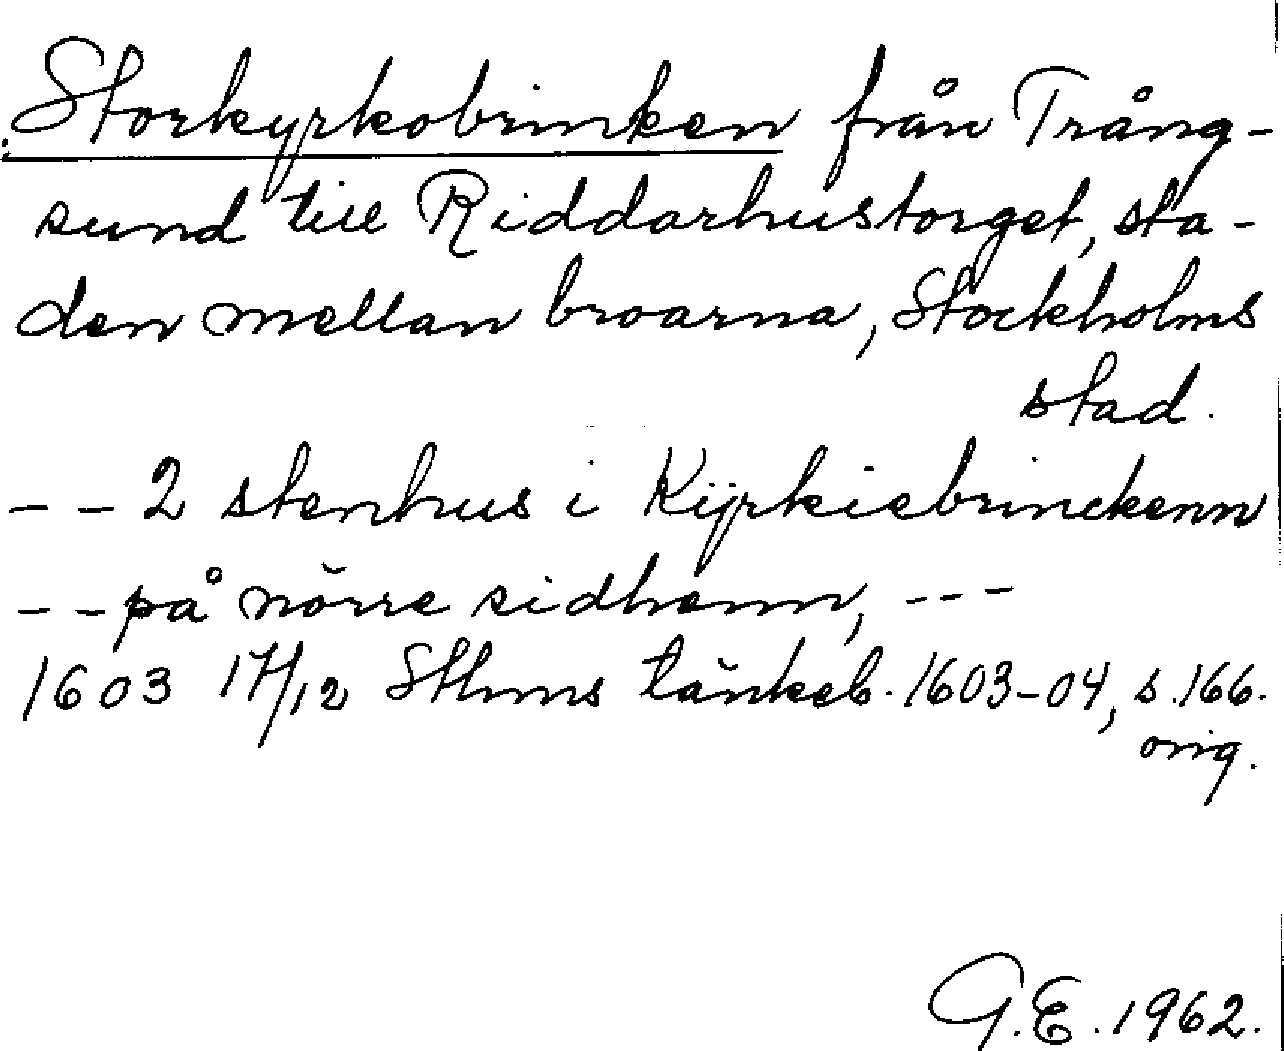 Storkyrkobrinken från Trång-
sund till Riddarhustorget, sta-
den mellan broarna, Stockholms
stad.
- - 2 stenhus i Kyrkiebrinckenn
- - på nörre sidhenn, - - -
1603 17/12 Sthms tänkeb. 1603-04, s. 166.
orig.
G.E. 1962.